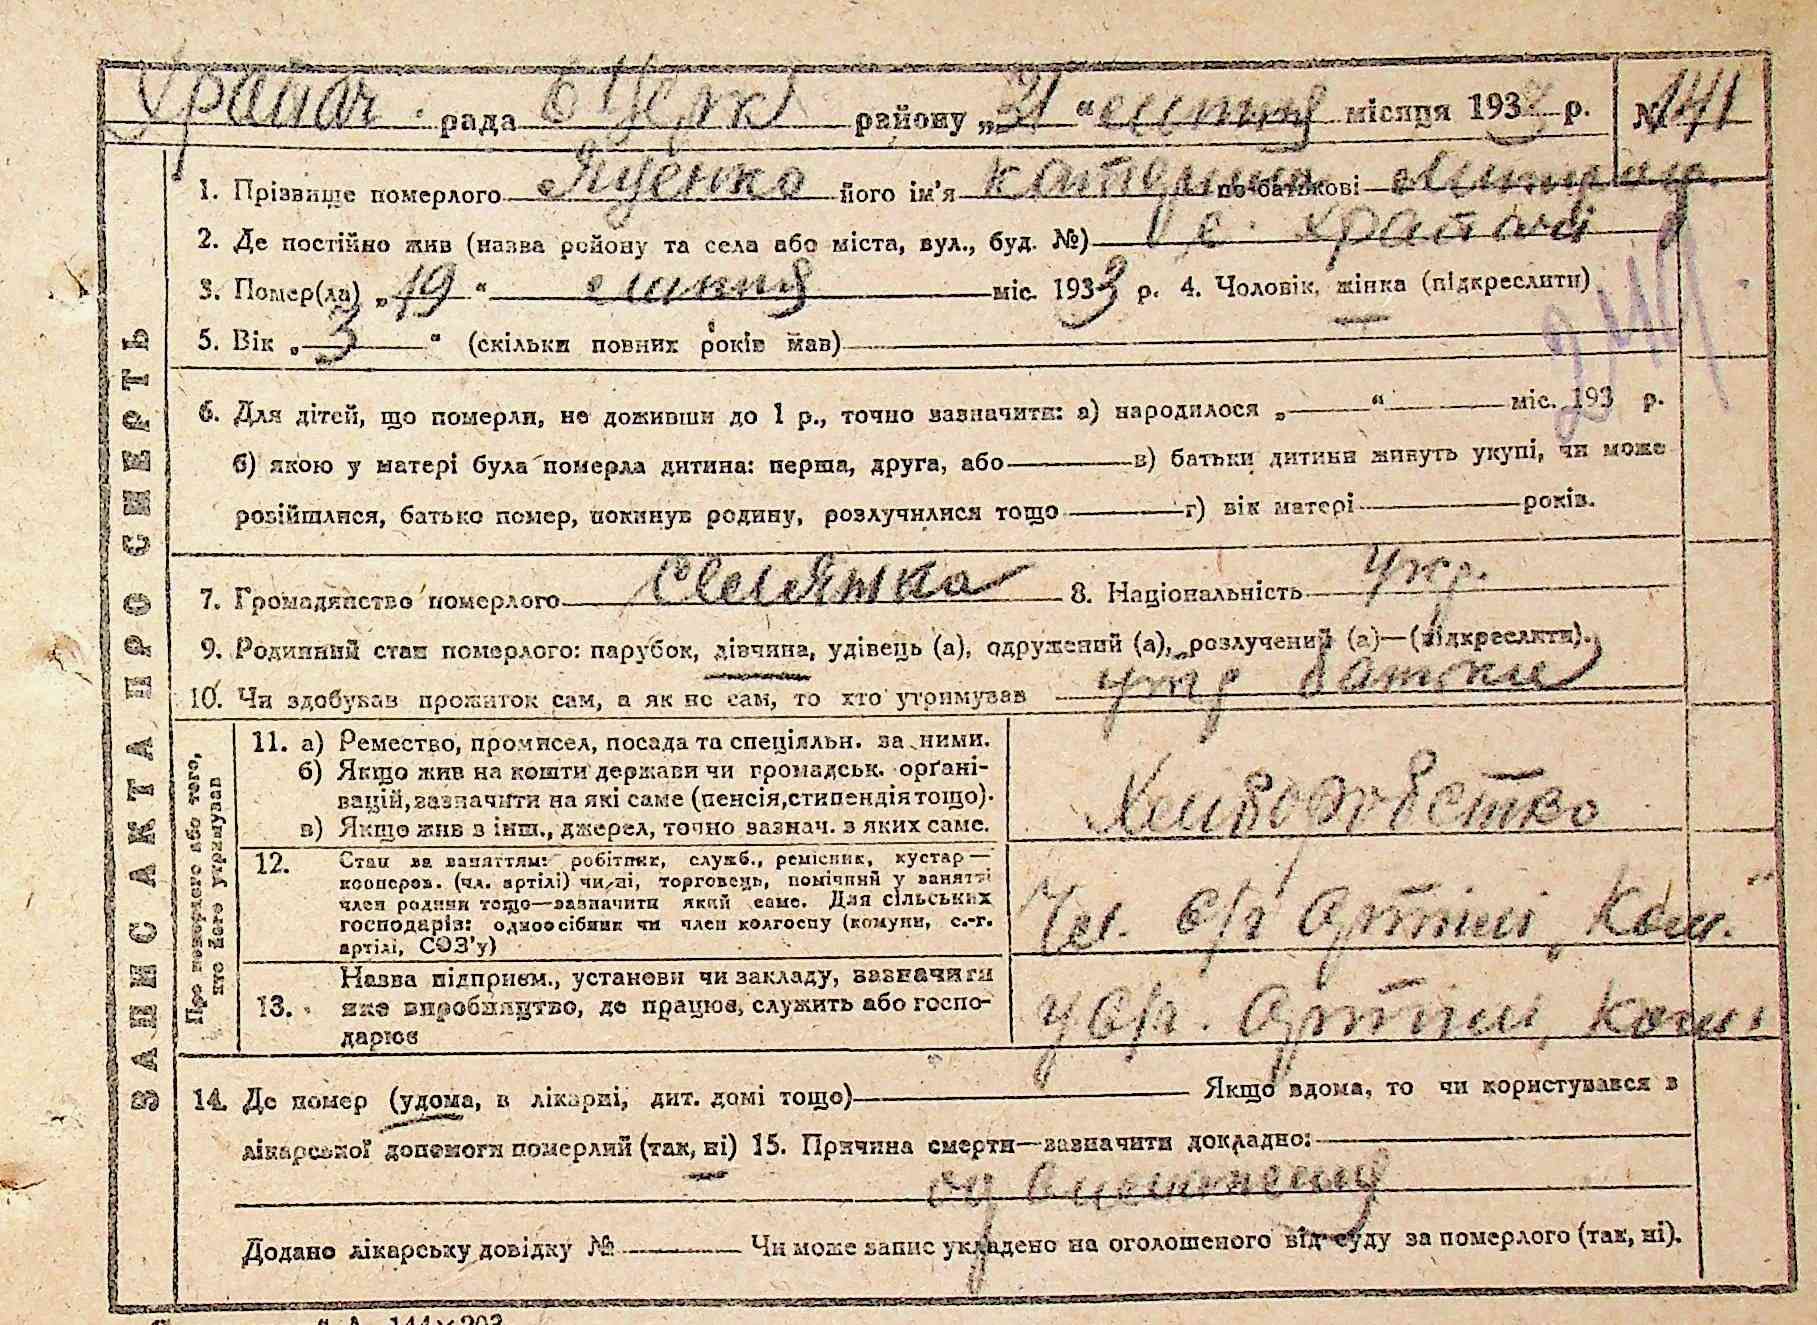 Храпач. рада б Церк району „31“ липня місяця 1933 р. № 141
ЗАПИС АКТА ПРО СМЕРТЬ
1. Прізвище померлого Яценко його ім'я Катерина по батькові Дмитров.
2. Де постійно жив (назва району та села або міста, вул., буд. №) с. Храпачі
3. Помер(ла) „19“ липня міс. 1933 р. 4. Чоловік, жінка (підкреслити)
5. Вік „3“ (скільки повних років мав)
6. Для дітей, що померли, не доживши до 1 р., точно зазначити: а) народилося „ “ міс. 193 р.
б) якою у матері була померла дитина: перша, друга, або в) батьки дитини живуть укупі, чи може
розійшлися, батько помер, покинув родину, розлучилися тощо г) вік матері років.
7. Громадянство померлого селянка 8. Національність укр.
9. Родинний стан померлого: парубок, дівчина, удівець (а), одружений (а), розлучений (а)—(підкреслити).
10. Чи здобував прожиток сам, а як не сам, то хто утримував утр батьки
Про померлого або того, хто його утримував
11. а) Ремество, промисел, посада та спеціяльн. за ними.
б) Якщо жив на кошти держави чи громадськ. орґані-
зацій, зазначити на які саме (пенсія, стипендія тощо).
в) Якщо жив з інш., джерел, точно зазнач. з яких саме.
Хліборобство
12. Стан за заняттям: робітник, служб., ремісник, кустар—
кооперов. (чл. артілі) чи ні, торговець, помічний у занятті
член родини тощо—зазначити який саме. Для сільських
господарів: одноосібник чи член колгоспу (комуни, с.-г.
артілі, СОЗ'у)
Чл. с/г артіли „Ком.“
13. Назва підприєм., установи чи закладу, зазначити
яке виробництво, де працює, служить або госпо-
дарює
у с/г. артіли,
14. Де помер (удома, в лікарні, дит. домі тощо) Якщо вдома, то чи користувався з
лікарської допомоги померлий (так, ні) 15. Причина смерти—зазначити докладно:
од виснаження
Додано лікарську довідку № Чи може запис укладено на оголошеного від суду за померлого (так, ні).